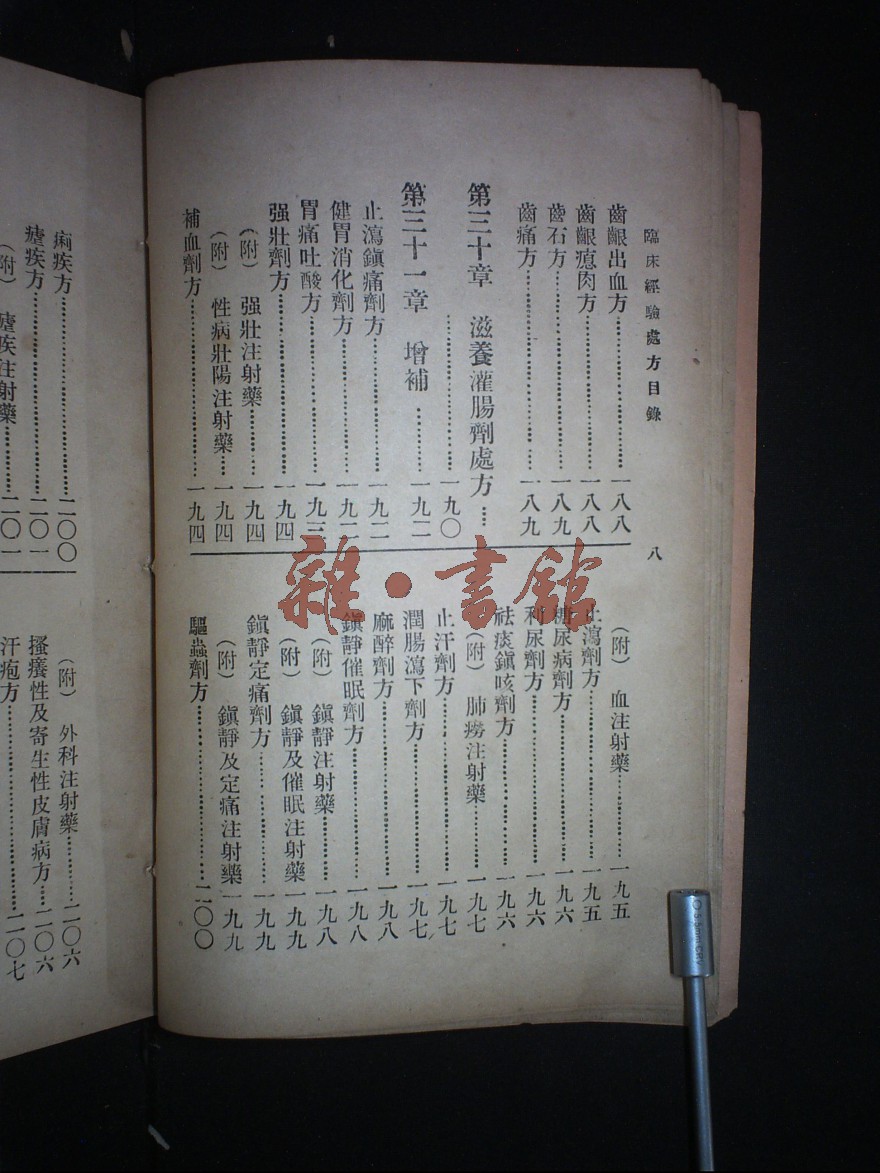 臨床經驗處方目錄 八
齒齦出血方……一八八
齒齦瘜肉方……一八八
齒石方……一八九
齒痛方……一八九
第三十章 滋養灌腸劑處方……
……一九〇
第三十一章 增補……一九二
止瀉鎮痛劑方……一九二
健胃消化劑方……一九二
胃痛吐酸方……一九三
强壯劑方……一九四
(附) 强壯注射藥……一九四
(附) 性病壯陽注射藥……一九四
補血劑方……一九四
(附) 血注射藥……一九五
止瀉劑方……一九五
糖尿病劑方……一九六
利尿劑方……一九六
祛痰鎮咳劑方……一九六
(附) 肺癆注射藥……一九七
止汗劑方……一九七
潤腸瀉下劑方……一九七
麻醉劑方……一九八
鎮靜催眠劑方……一九八
(附) 鎮靜注射藥……一九八
(附) 鎮靜及催眠注射藥……一九九
鎮靜定痛劑方……一九九
(附) 鎮靜及定痛注射藥……一九九
驅蟲劑方……二〇〇
痢疾方……二〇〇
瘧疾方……二〇一
(附) 瘧疾注射藥……二〇一
(附) 外科注射藥……二〇六
搔癢性及寄生性皮膚病方……二〇六
汗疱方……二〇七
雜·書館